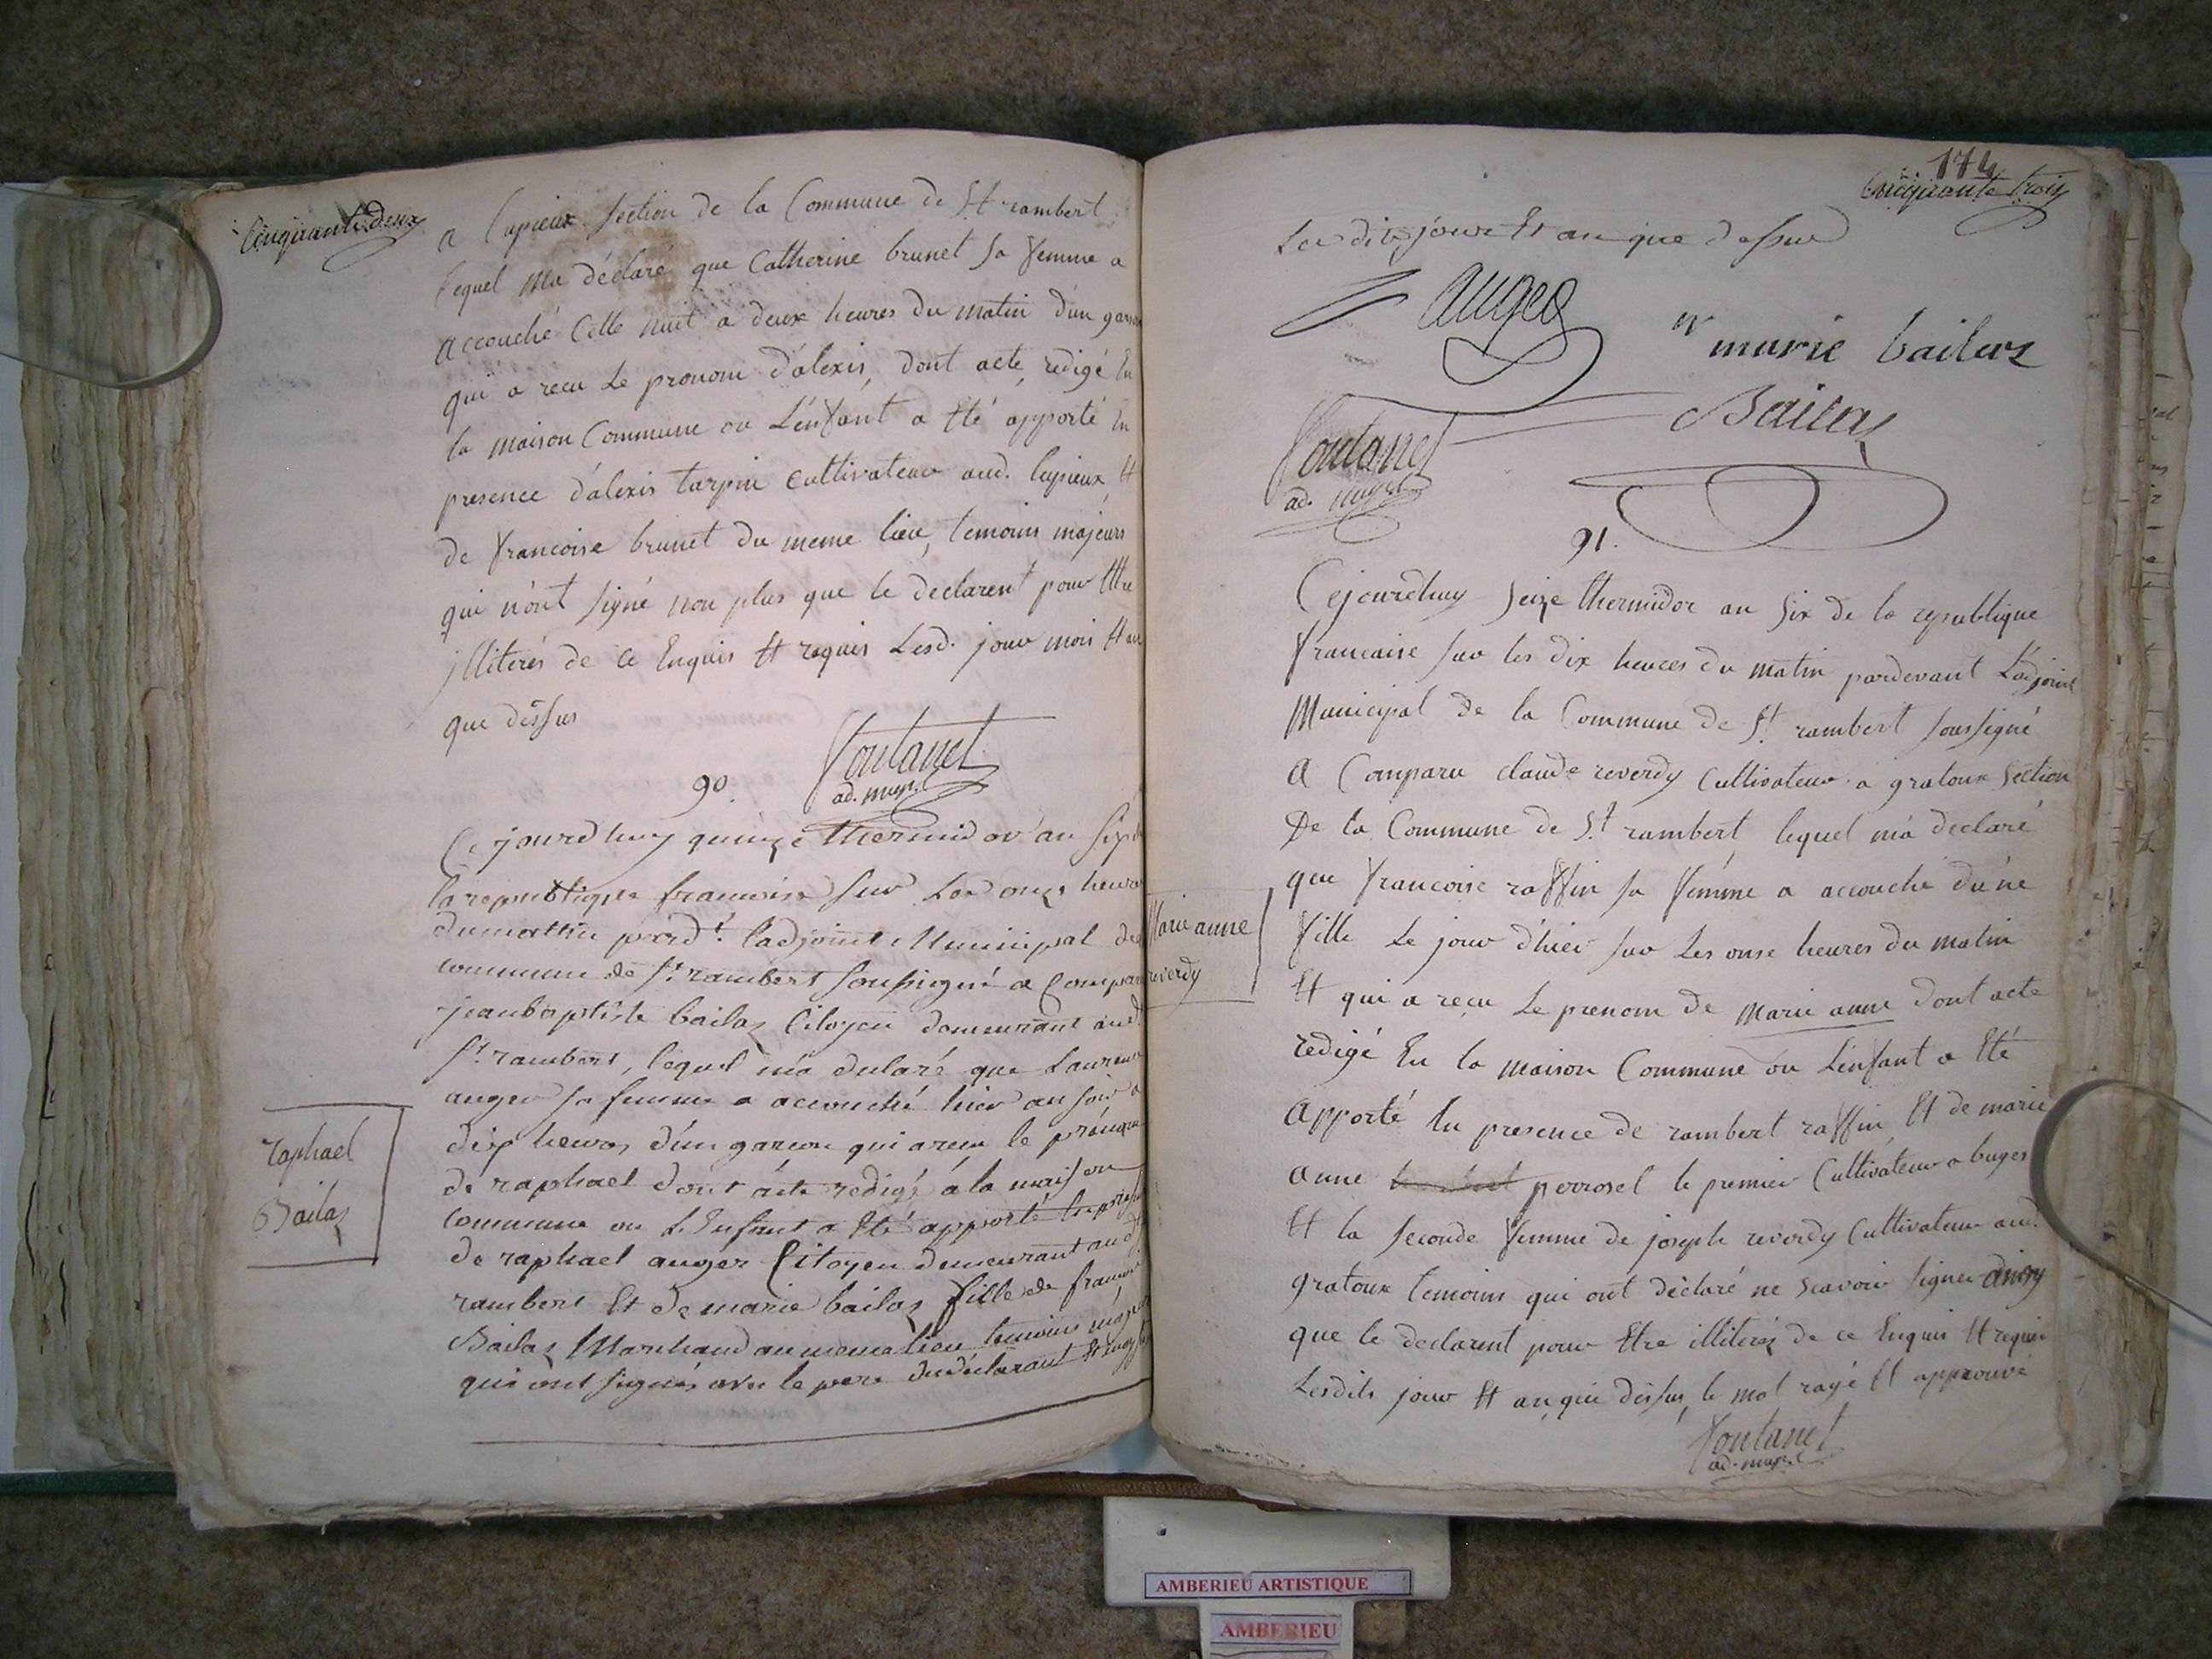 Cinquante deux
a Lupieux section de la Commune de St rambert
lequel m'a déclaré que Catherine brunet sa femme a
accouché Cette nuit a deux heures du matin d'un garcon
qui a recu le pronom d'alexis, dont acte, redigé En
la maison Commune ou L'enfant a Eté apporté En
presence d'alexis tarpin cultivateur aud. lupieux Et
de francoise brunet du meme lieu, temoins majeurs
qui n'ont signé non plus que le declarent pour Etre
jlliterés de ce Enquis Et requis Lesd. jour mois Et an
que dessus
90.
fontanet
ad. mupl.
Ce jourd'huy quinze thermidor an six de
la republique francoise sur Les onze heures
du mattin pard.t l'adjoint Municipal de
commune de St rambert soussigné a Comparu
jean baptiste bailaz Citoyen demeurant aud.
St rambert, lequel m'a declaré que Laurence
auger sa femme a accouché hier au soir a
dix heures d'un garcon qui a recu le prénom
de raphael dont acte redigé a la maison
commune ou L'Enfant a Eté apporté En presence
de raphael auger Citoyen demeurant aud.
rambert Et de marie bailaz fille de francois
Bailaz Marchand au meme lieu temoins majeurs
qui ont signés avec le pere du déclarant Et
raphael
Bailaz
174
Cinquante trois
Les dits jour Et an que dessus
auger
marie bailas
Bailaz
fontanet
ad. mupl.
91.
Cejourdhuy seize thermidor an six de la republique
francaise sur les dix heures du matin pardevant L'adjoint
Municipal de la Commune de St rambert soussigné
a Comparu claude reverdy Cultivateur a gratoux section
De la Commune de St rambert lequel m'a declaré
que francoise raffin sa femme a accouché d'une
fille Le jour d'hier sur Les onse heures du matin
Et qui a reçu Le prenom de Marie anne dont acte
redigé En la maison Commune ou L'enfant a Eté
apporté En presence de rambert raffin Et de marie
anne perrosel le premier Cultivateur a buges
Et la seconde femme de joseph reverdy Cultivateur aud.
gratoux temoins qui ont déclaré ne scavoir signer ainsy
que le declarent pour Etre illiteréz de ce Enquis Et requis
Lesdits jour Et an que dessus, le mot rayé Et approuvé
fontanet
ad. mupl.
Marie anne
reverdy
AMBERIEU ARTISTIQUE
AMBERIEU